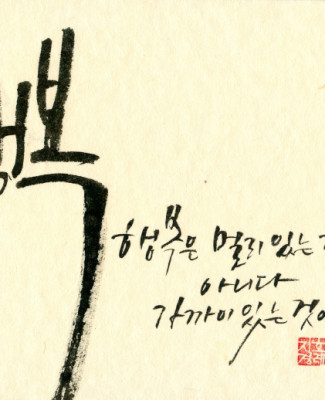 복
행복은 멀리 있는
아니다
가까이 있는 것